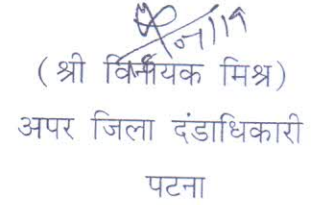 ( श्री विनायक मिश्र)
अपर जिला दंडाधिकारी
पटना